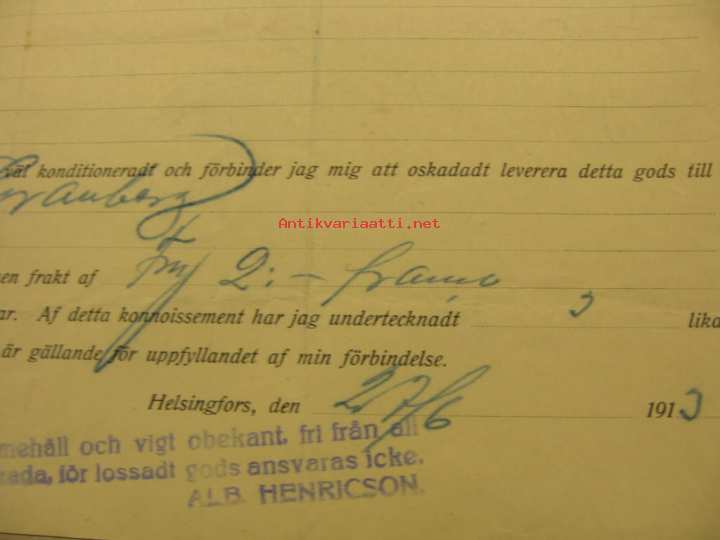 väl konditioneradt och förbinder jag mig att oskadadt leverera detta gods till
Antikvariaatti.net
en frakt af Fmk 2:–
ar. Af detta konnoissement har jag undertecknadt 3 lika
är gällande för uppfyllandet af min förbindelse.
Helsingfors, den 27/6 1913
nnehåll och vigt obekant, fri från all
kada, för lossadt gods ansvaras icke.
ALB. HENRICSON.